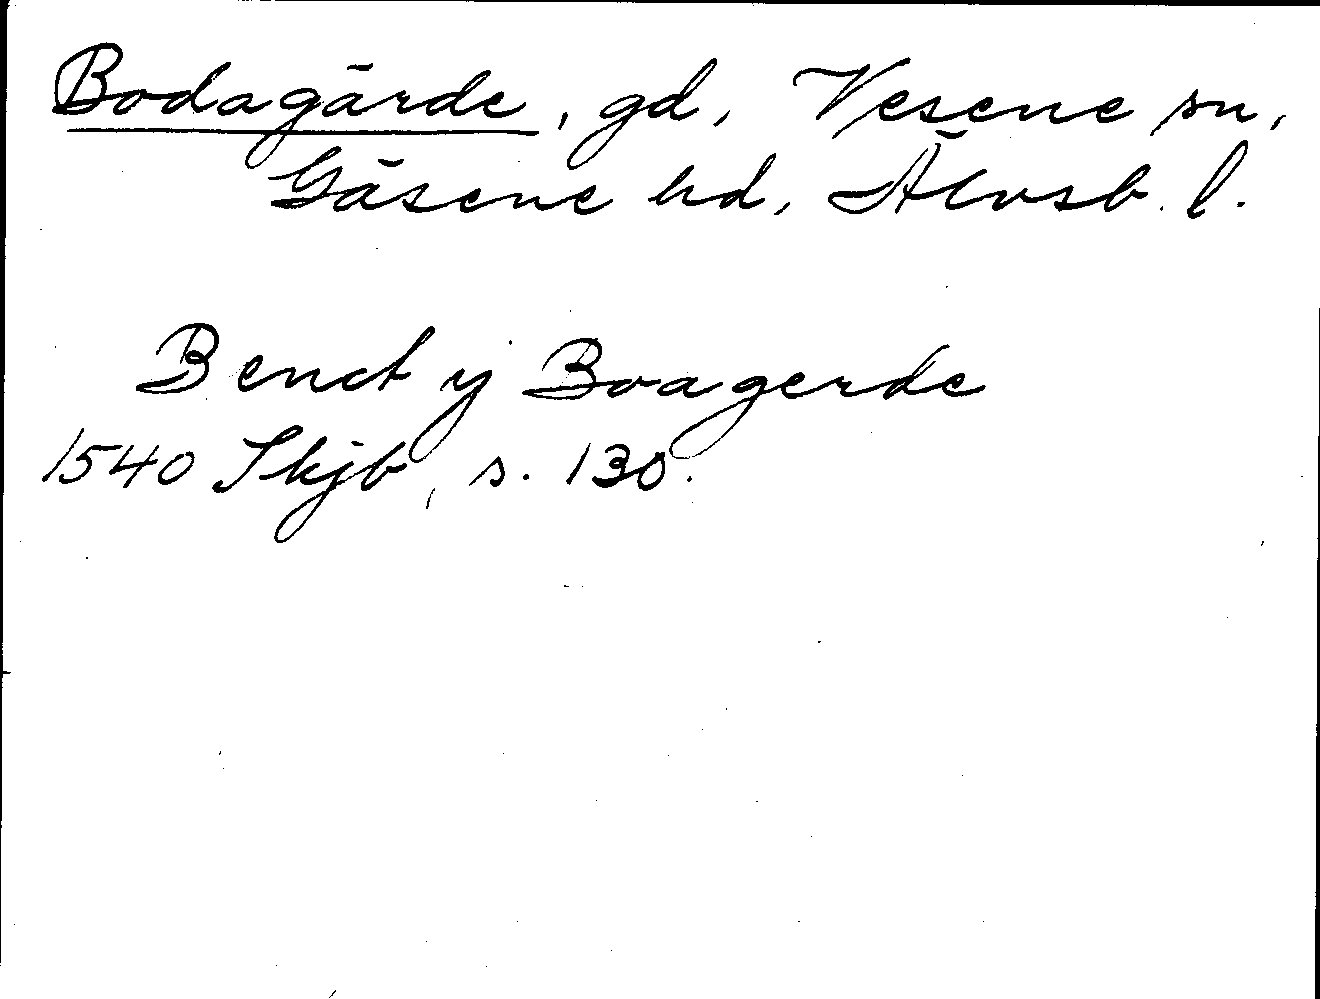 Bodagärde, gd, Vesene sn,
Gäsene hd, Älvsb. l.
Benct y Boagerde
1540 Skjb, s. 130.